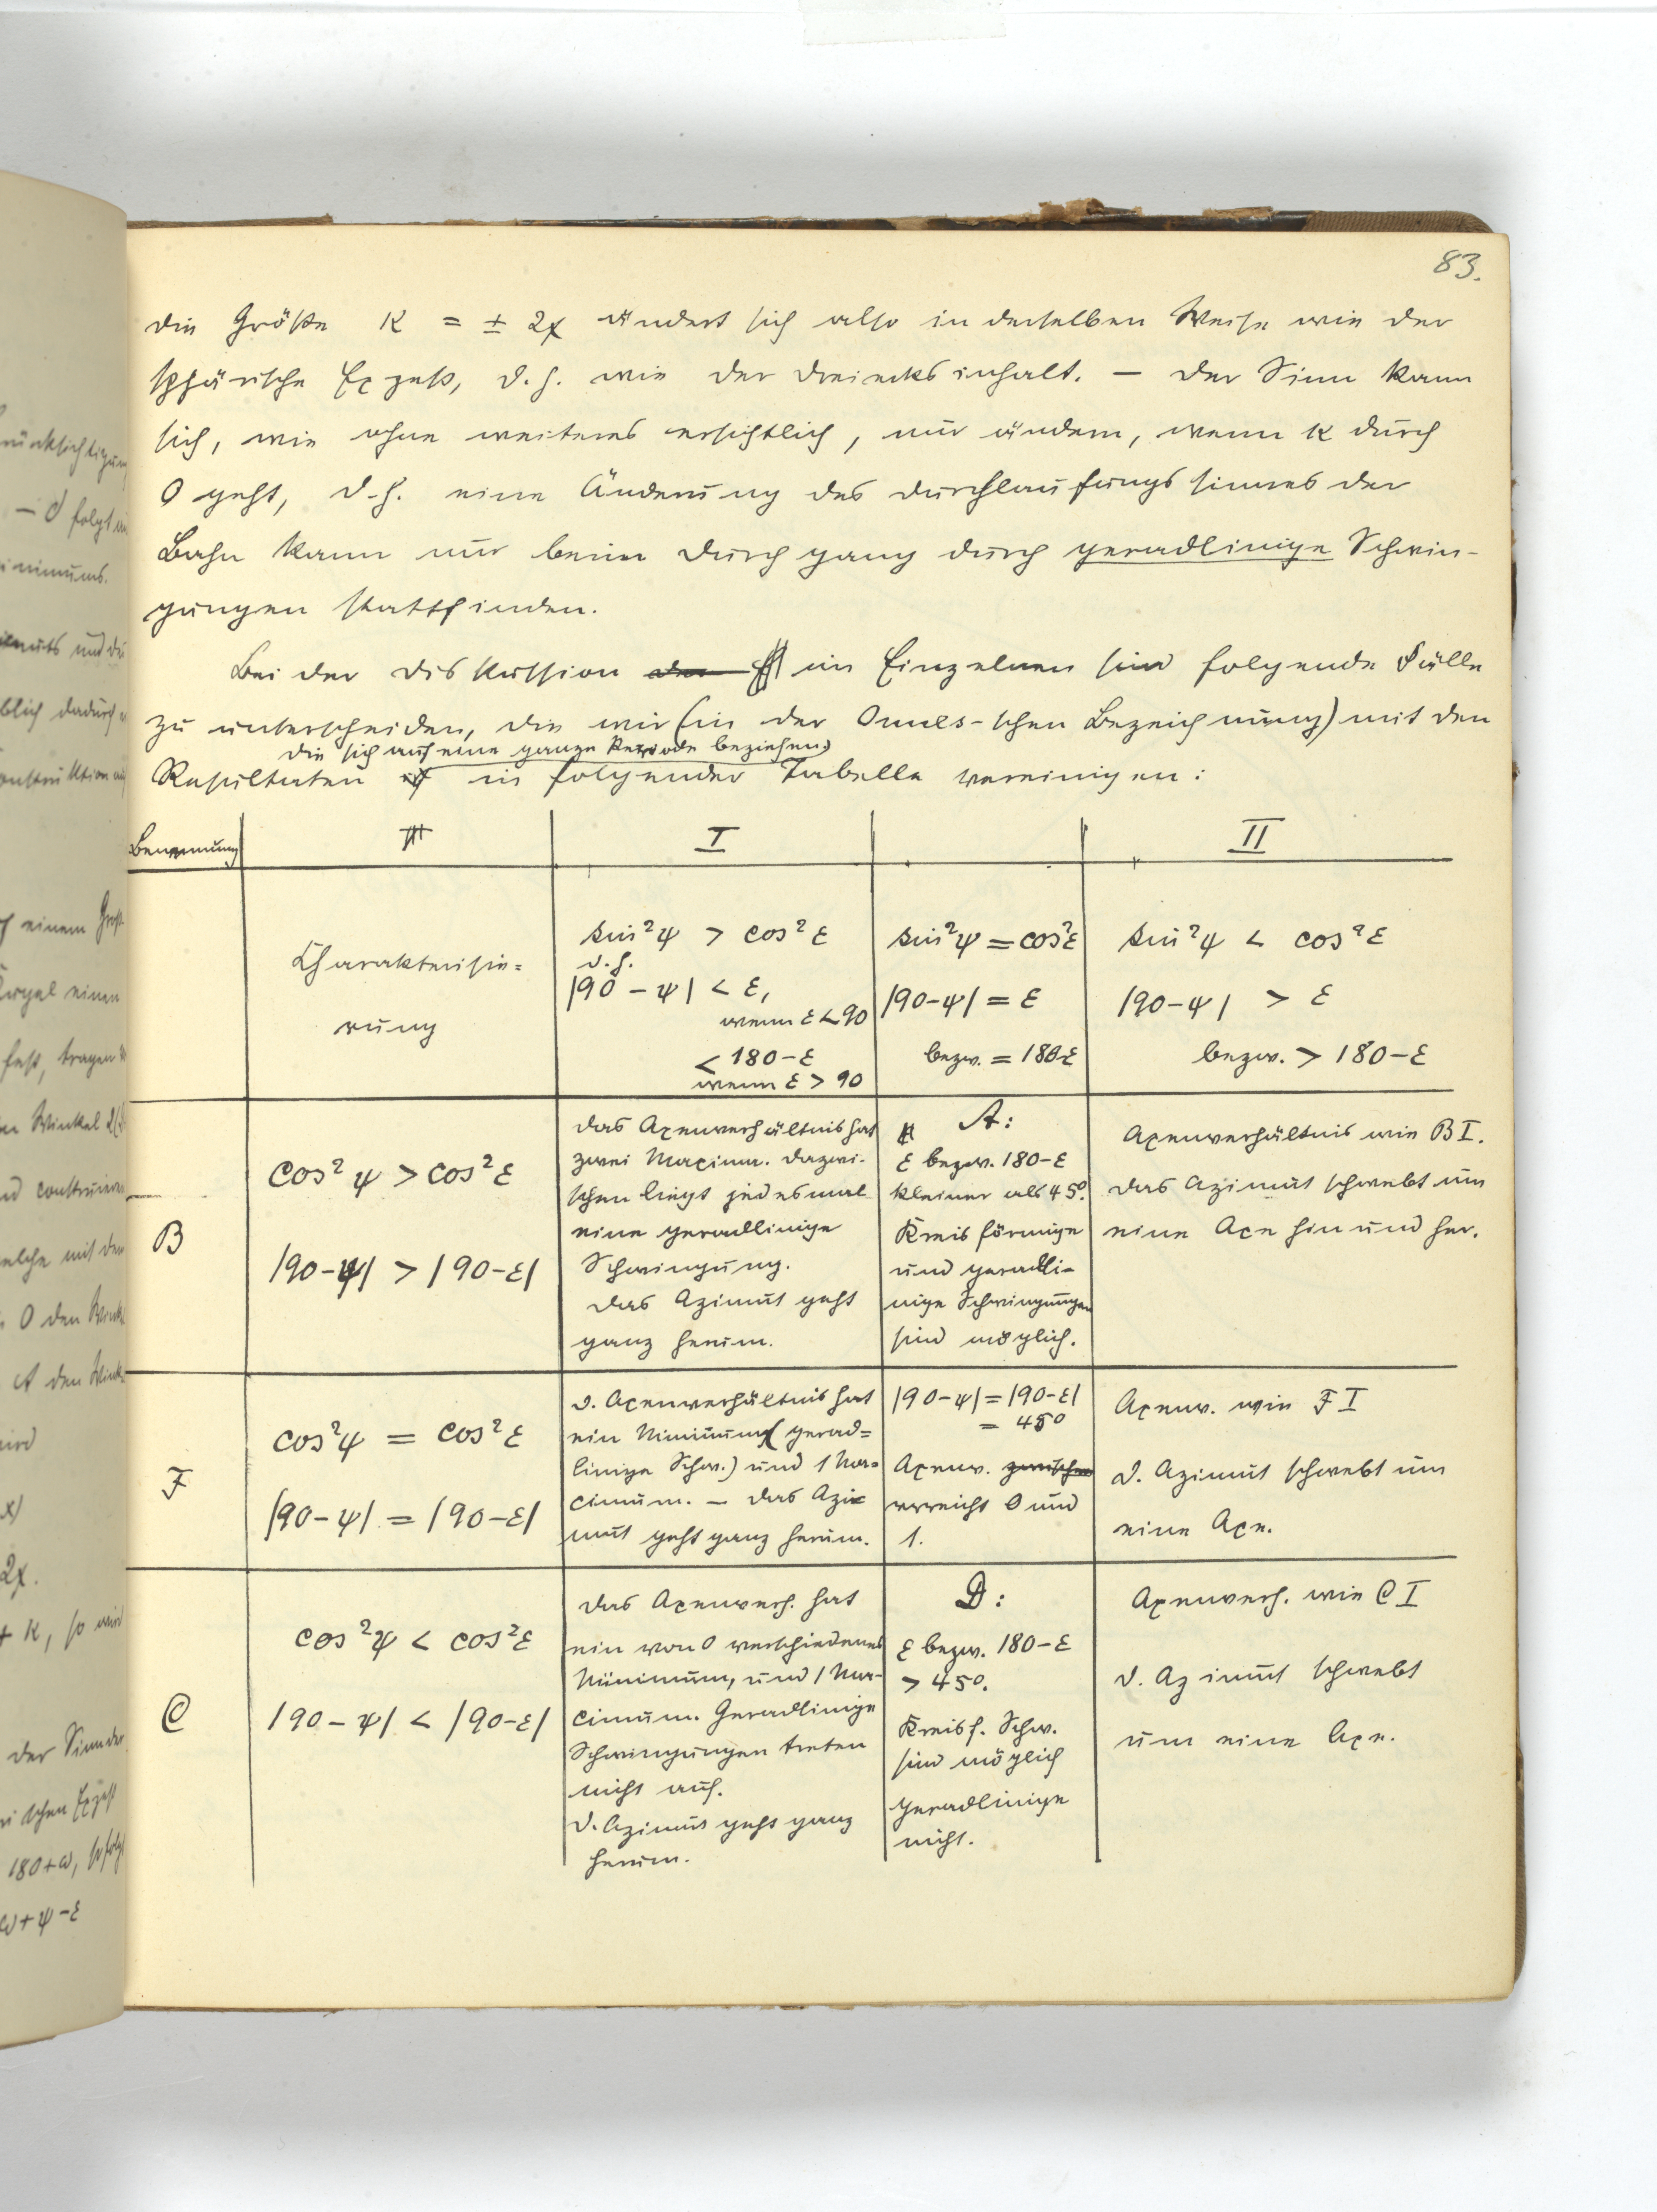 83.
die Größe K = ± 2χ ändert sich also in derselben Weise wie der
sphärische Exzeß, d. h. wie der Dreiecksinhalt. — Der Sinn kann
sich, wie ohne weiteres ersichtlich, nur ändern, wenn K durch
0 geht, d. h. eine Änderung des Durchlaufungssinnes der
Bahn kann nur beim Durchgang durch geradlinige Schwin-
gungen stattfinden.
Bei der Diskussion der im Einzelnen sind folgende Fälle
zu unterscheiden, die wir (in der Onnes-schen Bezeichnung) mit den
die sich auf eine ganze Periode beziehen,
Resultaten in folgender Tabelle vereinigen:
Benennung
I
II
Charakterisie=
rung
sin²ψ > cos²ε
d. h.
|90 - ψ| < ε,
wenn ε < 90
< 180-ε
wenn ε > 90
sin²ψ = cos²ε
|90-ψ| = ε
bezw. = 180-ε
sin²ψ < cos²ε
|90-ψ| > ε
bezw. > 180-ε
B
cos²ψ > cos²ε
|90-ψ| > |90-ε|
Das Axenverhältnis hat
zwei Maxima. Dazwi-
schen liegt jedesmal
eine geradlinige
Schwingung.
Das Azimut geht
ganz herum.
A:
ε bezw. 180-ε
kleiner als 45°.
Kreisförmige
und geradli-
nige Schwingungen
sind möglich.
Axenverhältnis wie B I.
Das Azimut schwebt um
eine Axe hin und her.
F
cos²ψ = cos²ε
|90-ψ| = |90-ε|
D. Axenverhältnis hat
ein Minimum (gerad=
linige Schw.) und 1 Ma=
ximum. — Das Azi=
mut geht ganz herum.
|90-ψ| = |90-ε|
= 45°
Axenv. zwischen
erreicht 0 und
1.
Axenv. wie F I
D. Azimut schwebt um
eine Axe.
C
cos²ψ < cos²ε
|90-ψ| < |90-ε|
Das Axenverh. hat
ein von 0 verschiedenes
Minimum, und 1 Ma-
ximum. Geradlinige
Schwingungen treten
nicht auf.
D. Azimut geht ganz
herum.
D:
ε bezw. 180-ε
> 45°.
Kreisf. Schw.
sind möglich
geradlinige
nicht.
Axenverh. wie C I
D. Azimut schwebt
um eine Axe.